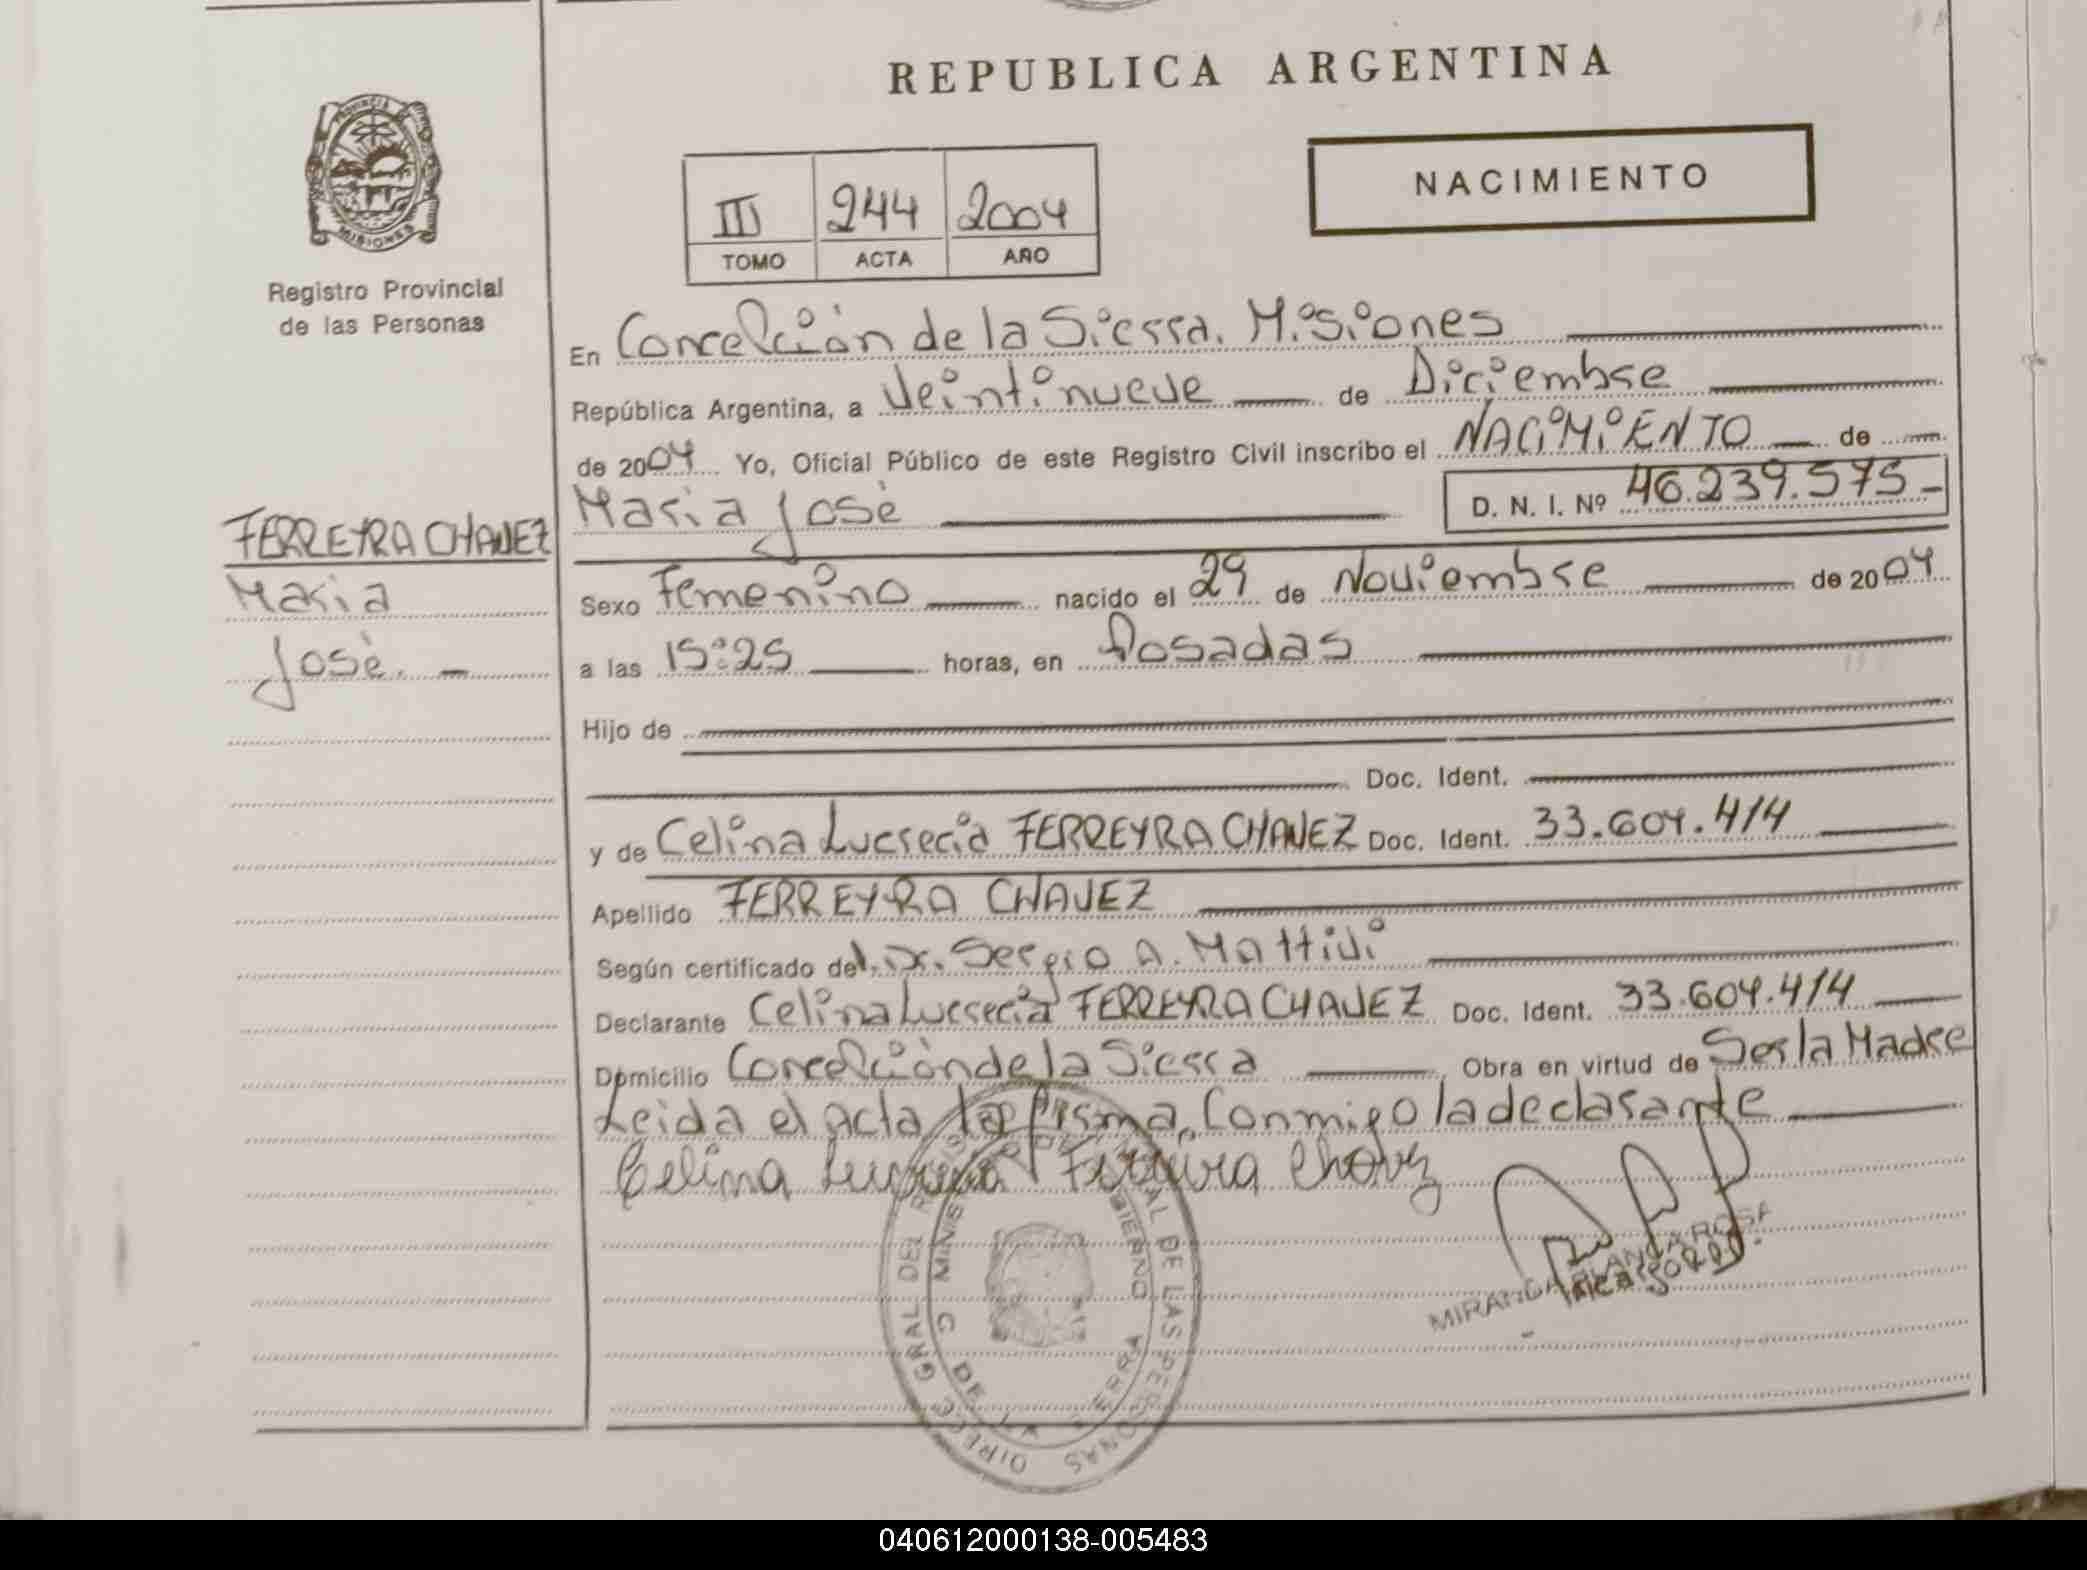 REPUBLICA ARGENTINA
PROVINCIA
MISIONES
Registro Provincial
de las Personas
NACIMIENTO
III 244 2004
TOMO ACTA AÑO
En Concepción de la Sierra. Misiones
República Argentina, a Veintinueve de Diciembre
de 2004 Yo, Oficial Público de este Registro Civil inscribo el NACIMIENTO de
María José D. N. I. Nº 46.239.575
FERREYRA CHAVEZ
María
José.
Sexo Femenino nacido el 29 de Noviembre de 2004
a las 15:25 horas, en Posadas
Hijo de
Doc. Ident.
y de Celina Lucrecia FERREYRA CHAVEZ Doc. Ident. 33.604.414
Apellido FERREYRA CHAVEZ
Según certificado del. Dr. Sergio A. Mattivi
Declarante Celina Lucrecia FERREYRA CHAVEZ Doc. Ident. 33.604.414
Domicilio Concepción de la Sierra Obra en virtud de Ser la Madre
Leida el acta la firma, Conmigo la declarante
Celina Lucrecia Ferreyra Chavez
MIRANDA BLANCA ROSA
DIRECC GRAL DEL DE LAS PERSONAS
040612000138-005483